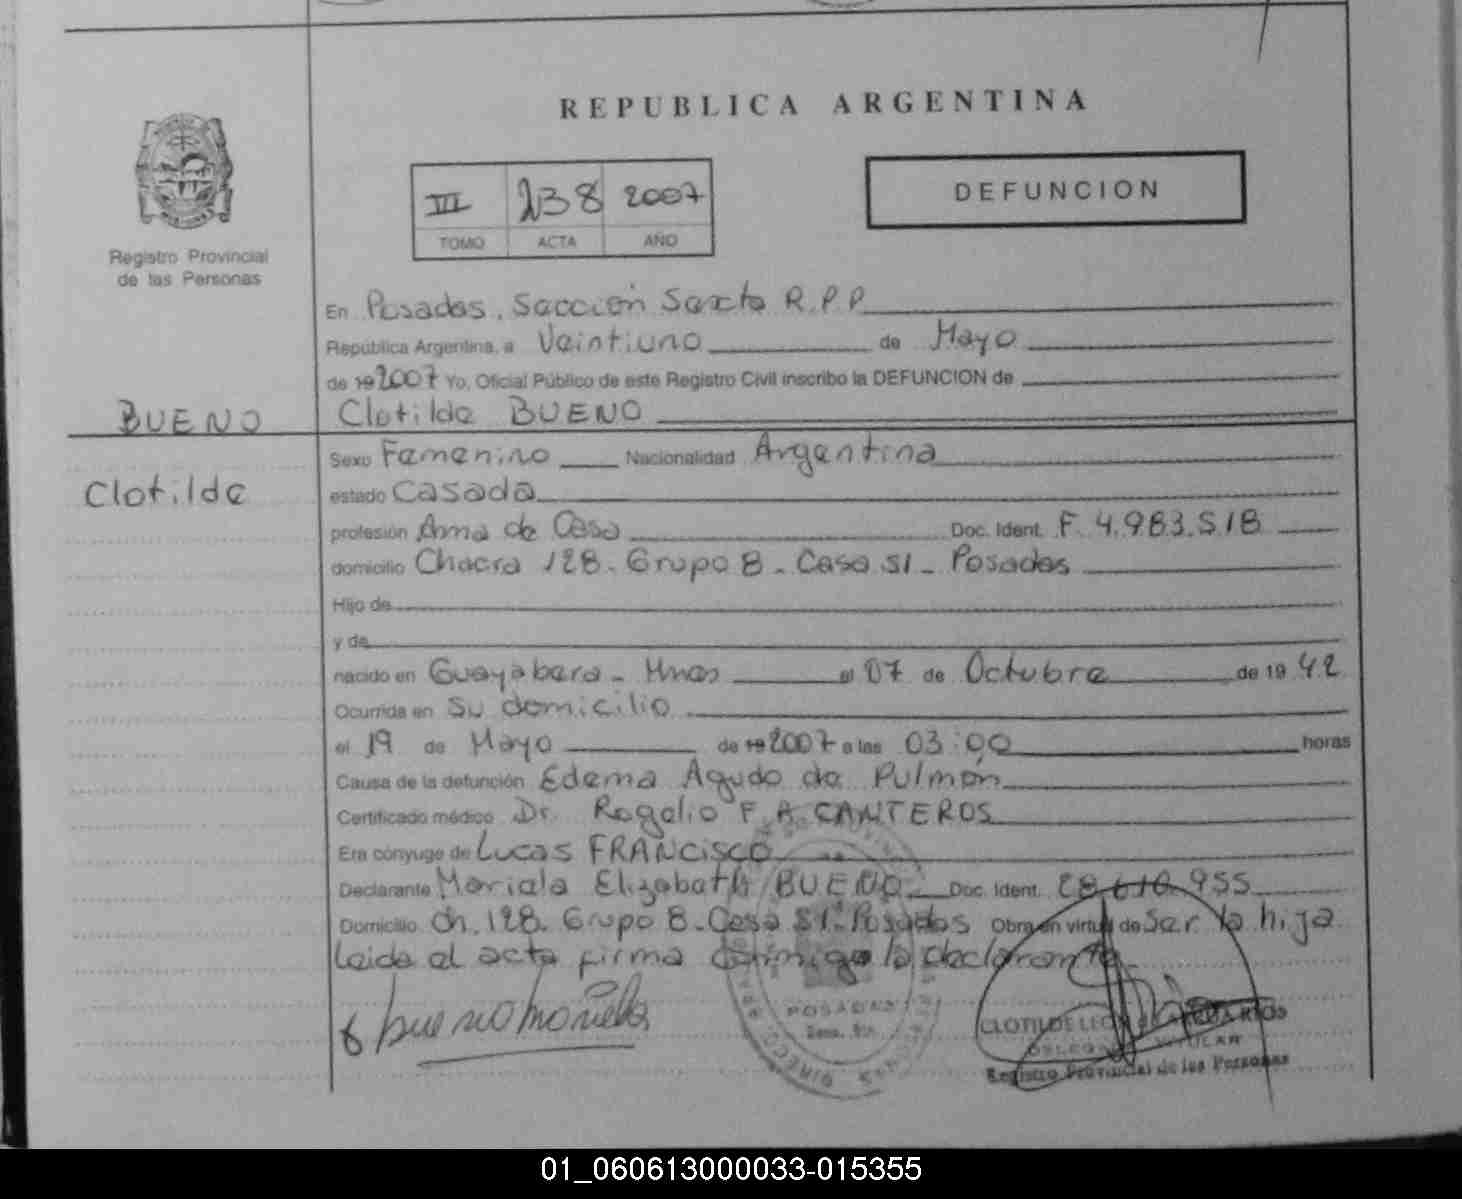 REPUBLICA ARGENTINA
DEFUNCION
III 238 2007
TOMO ACTA AÑO
Registro Provincial
de las Personas
En Posadas, Sección Sexta R.P.P.
República Argentina, a Veintiuno de Mayo
de 19 2007 Yo, Oficial Público de este Registro Civil inscribo la DEFUNCION de
BUENO
Clotilde BUENO
Clotilde
Sexo Femenino Nacionalidad Argentina
estado Casada
profesión Ama de Casa Doc. Ident. F. 4.983.518
domicilio Chacra 128. Grupo 8 - Casa 51 - Posadas
Hijo de
y de
nacido en Guayabera - Mnes el 07 de Octubre de 19 42
Ocurrida en Su domicilio
el 19 de Mayo de 19 2007 a las 03:00 horas
Causa de la defunción Edema Agudo de Pulmón
Certificado médico Dr. Rogelio F. A. CANTEROS
Era cónyuge de Lucas FRANCISCO
Declarante Mariela Elizabeth BUENO Doc. Ident. 28.610.955
Domicilio Ch. 128. Grupo 8 - Casa 51 - Posados Obra en virtud de Ser la hija
Leida el acta firma conmigo la declarante
Bueno Mariela
POSADAS
CLOTILDE
DELEGADA TITULAR
Registro Provincial de las Personas
01_060613000033-015355